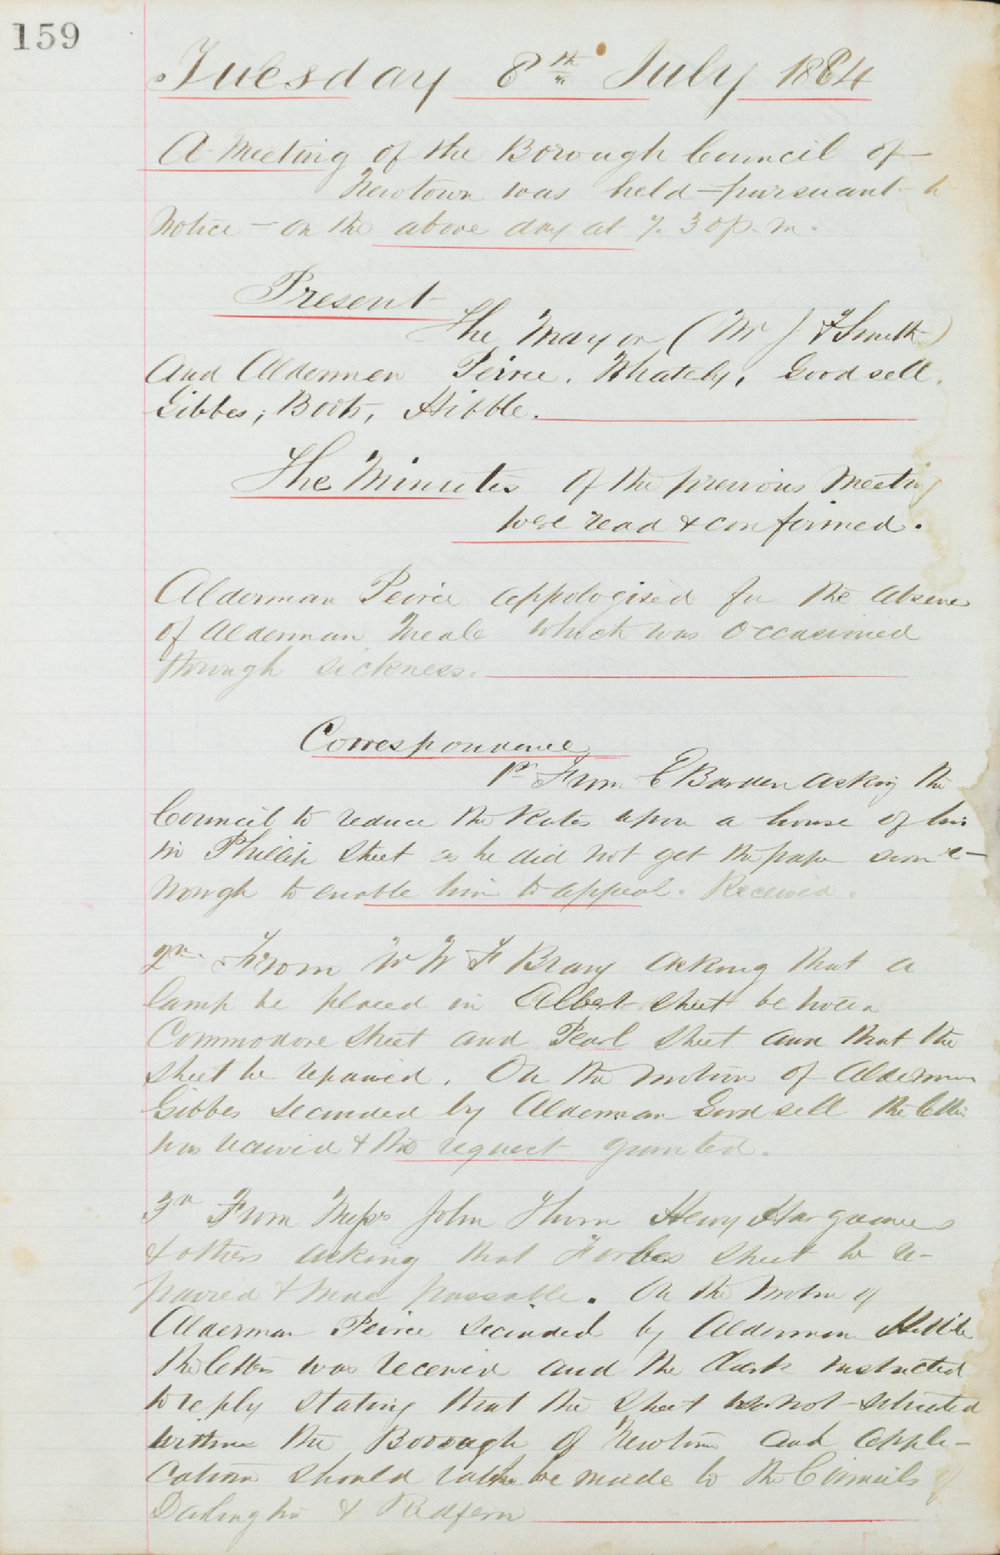 159
Tuesday 8th July 1884
A Meeting of the Borough Council of
Newtown was held pursuant to
Notice - on the above day at 7.30 p.m.
Present
The Mayor (Mr J F Smith)
And Aldermen Peirce, Whately, Goodsell,
Gibbes, Boots, Hibble.
The Minutes of the previous Meeting
were read & confirmed.
Alderman Peirce appologised for the absence
of Alderman Neale which was occasioned
through sickness.
Correspondence
1st From E Barden asking the
Council to reduce the Rates upon a house of his
in Phillip Street as he did not get the paper soon e-
nough to enable him to appeal. Received.
2nd From W W F Bray asking that a
lamp be placed in Albert Street between
Commodore Street and Pearl Street and that the
street be repaired. On the motion of Alderman
Gibbes seconded by Alderman Goodsell the letter
was received & the request granted.
3rd From Messrs John Thorn Henry Hargraves
& others asking that Forbes Street be re-
paired & made passable. On the motion of
Alderman Peirce seconded by Alderman Hibble
the letter was received and the Clerk instructed
to reply stating that the street was not situated
within the Borough of Newtown and appli-
cation should rather be made to the Councils of
Darlington & Redfern